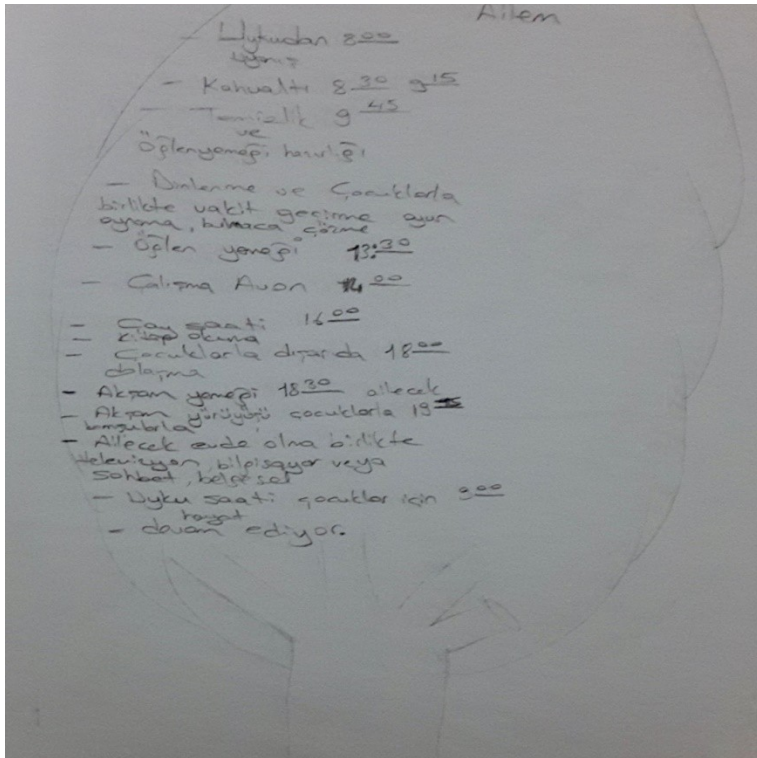 Ailem
- Uykudan 8:00
uyanış
- Kahvaltı 8:30 9:15
- Temizlik 9:45
ve
Öğlenyemeği hazırlığı
- Dinlenme ve Çocuklarla
birlikte vakit geçirme oyun
oynama, bulmaca çözme
- Öğlen yemeği 13:30
- Çalışma Avon 14:00
- Çay saati 16:00
- kitap okuma
- Çocuklarla dışarıda 18:00
dolaşma
- Akşam yemeği 18:30 ailecek
- Akşam yürüyüşü çocuklarla 19
- Ailecek evde olma birlikte
televizyon, bilgisayar veya
sohbet, belgesel
- Uyku saati çocuklar için 9:00
hayat
- devam ediyor.